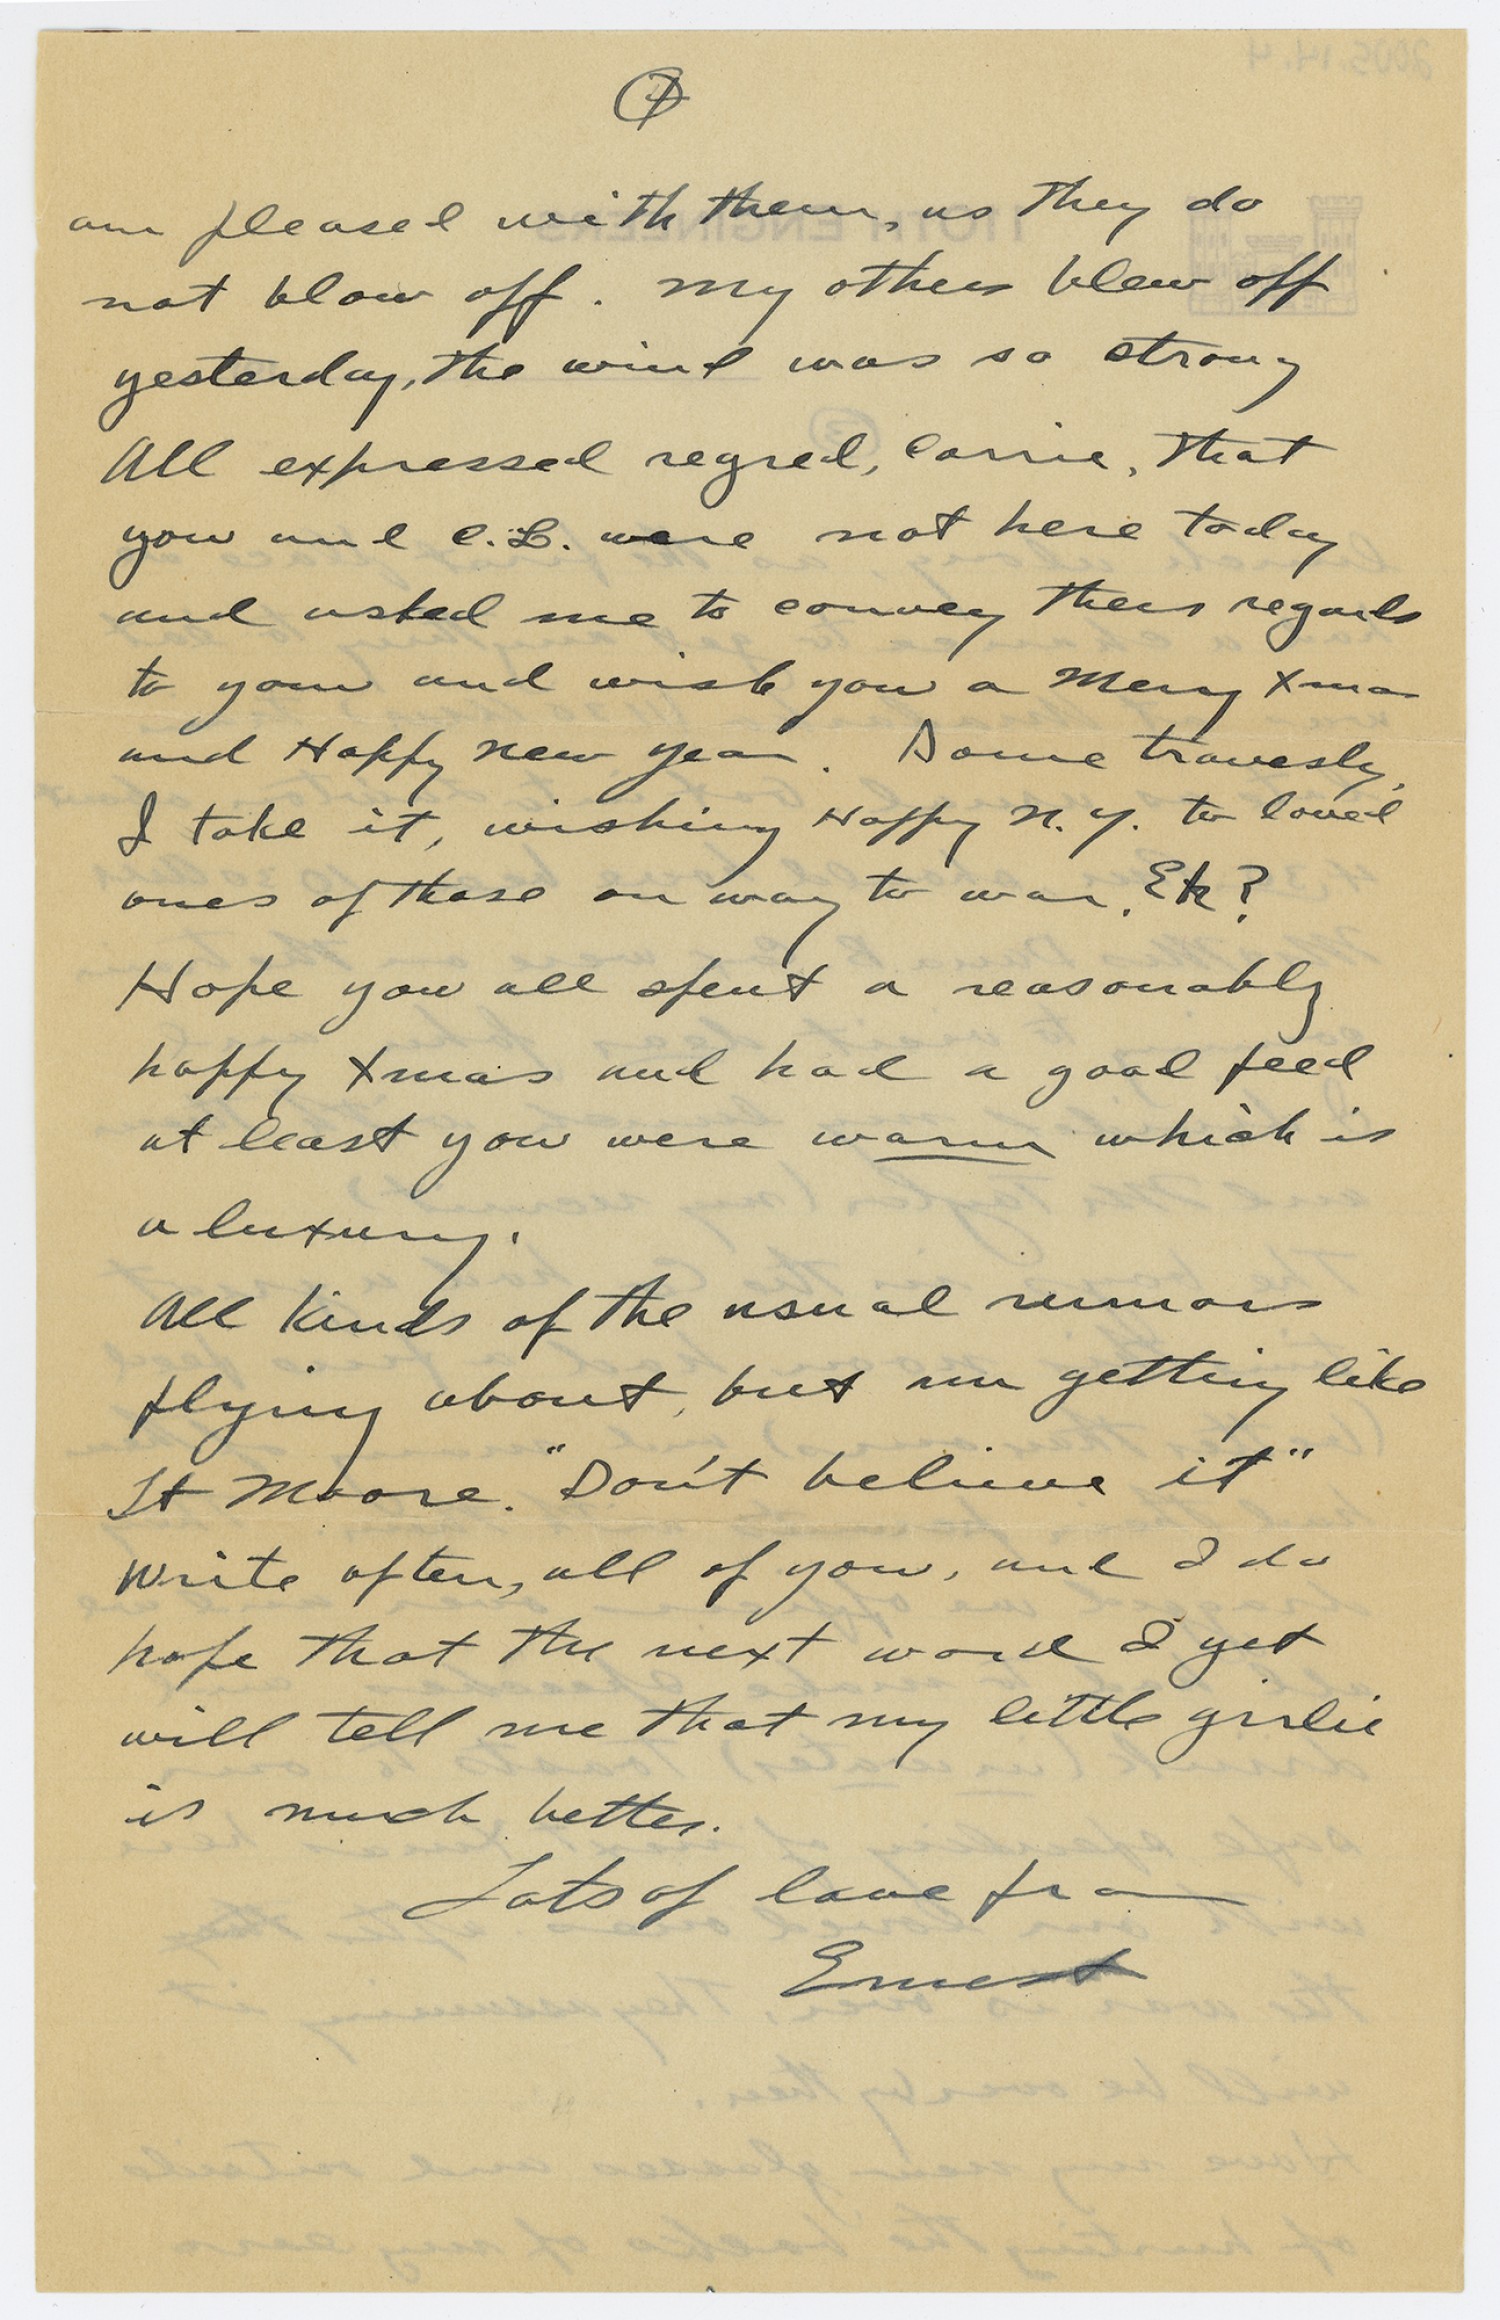 7
am pleased with them, as they do
not blow off. My others blew off
yesterday, the wind was so strong
All expressed regred, Carrie, that
you and C.L. were not here today
and asked me to convey their regards
to you and wish you a Merry Xmas
and Happy New Year. Some travesty,
I take it, wishing Happy N.Y. to loved
ones of those on way to war. Eh?
Hope you all spent a reasonably
happy Xmas and had a good feed
at least you were warm which is
a luxury.
All kinds of the usual rumors
flying about, but am getting like
Lt Moore. "Don't believe it"
Write often, all of you, and I do
hope that the next word I get
will tell me that my little girlie
is much better.
Lots of love from
Ernest